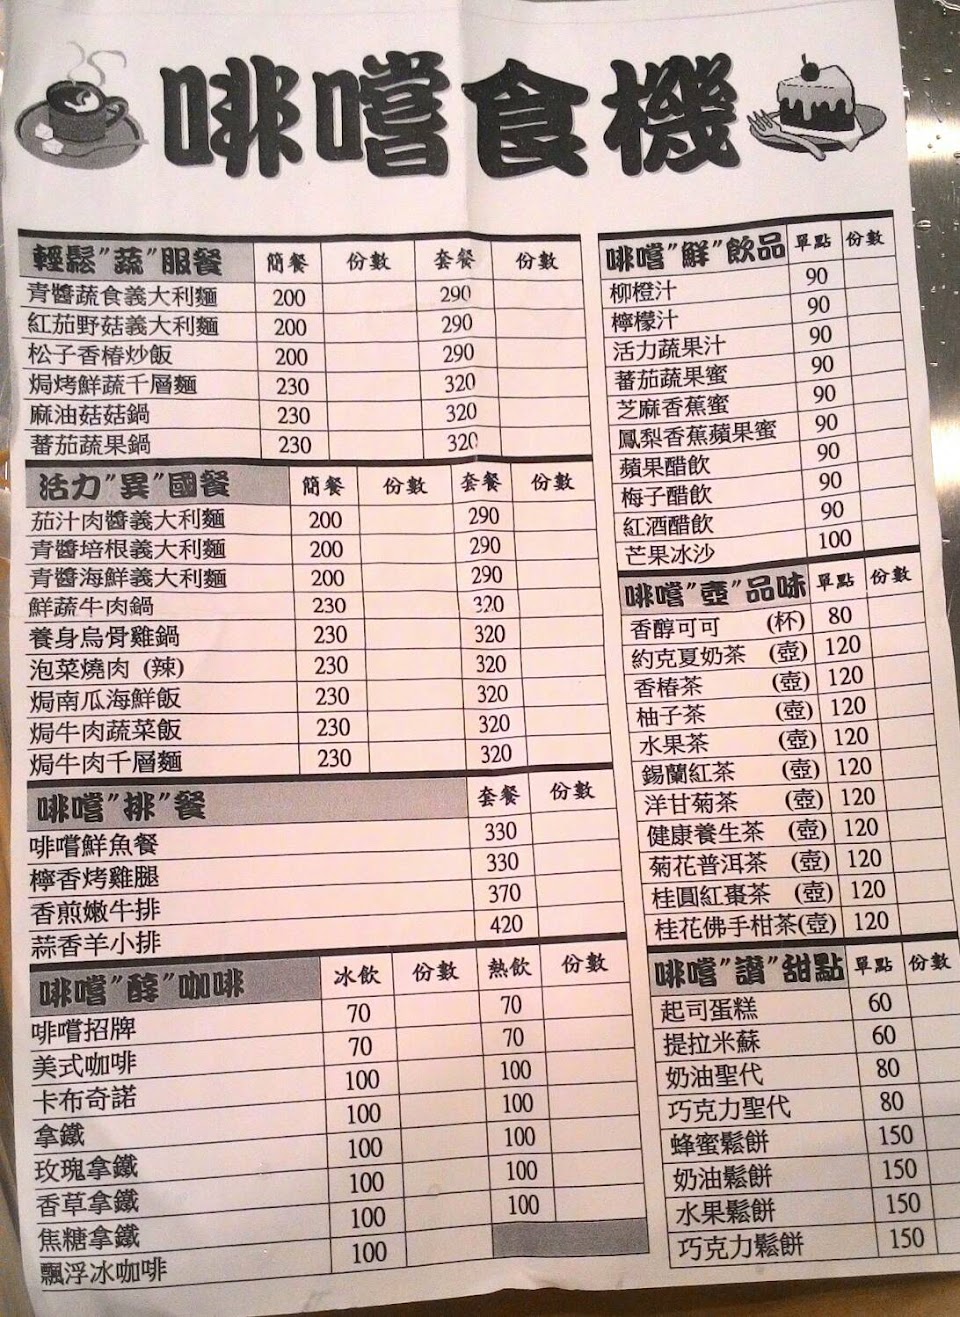 啡嚐食機
輕鬆"蔬"服餐 簡餐 份數 套餐 份數
青醬蔬食義大利麵 200 290
紅茄野菇義大利麵 200 290
松子香椿炒飯 200 290
焗烤鮮蔬千層麵 230 320
麻油菇菇鍋 230 320
蕃茄蔬果鍋 230 320
活力"異"國餐 簡餐 份數 套餐 份數
茄汁肉醬義大利麵 200 290
青醬培根義大利麵 200 290
青醬海鮮義大利麵 200 290
鮮蔬牛肉鍋 230 320
養身烏骨雞鍋 230 320
泡菜燒肉 (辣) 230 320
焗南瓜海鮮飯 230 320
焗牛肉蔬菜飯 230 320
焗牛肉千層麵 230 320
啡嚐"排"餐 套餐 份數
啡嚐鮮魚餐 330
檸香烤雞腿 330
香煎嫩牛排 370
蒜香羊小排 420
啡嚐"醇"咖啡 冰飲 份數 熱飲 份數
啡嚐招牌 70 70
美式咖啡 70 70
卡布奇諾 100 100
拿鐵 100 100
玫瑰拿鐵 100 100
香草拿鐵 100 100
焦糖拿鐵 100 100
飄浮冰咖啡 100
啡嚐"鮮"飲品 單點 份數
柳橙汁 90
檸檬汁 90
活力蔬果汁 90
蕃茄蔬果蜜 90
芝麻香蕉蜜 90
鳳梨香蕉蘋果蜜 90
蘋果醋飲 90
梅子醋飲 90
紅酒醋飲 90
芒果冰沙 100
啡嚐"壺"品味 單點 份數
香醇可可 (杯) 80
約克夏奶茶 (壺) 120
香椿茶 (壺) 120
柚子茶 (壺) 120
水果茶 (壺) 120
錫蘭紅茶 (壺) 120
洋甘菊茶 (壺) 120
健康養生茶 (壺) 120
菊花普洱茶 (壺) 120
桂圓紅棗茶 (壺) 120
桂花佛手柑茶(壺) 120
啡嚐"讚"甜點 單點 份數
起司蛋糕 60
提拉米蘇 60
奶油聖代 80
巧克力聖代 80
蜂蜜鬆餅 150
奶油鬆餅 150
水果鬆餅 150
巧克力鬆餅 150